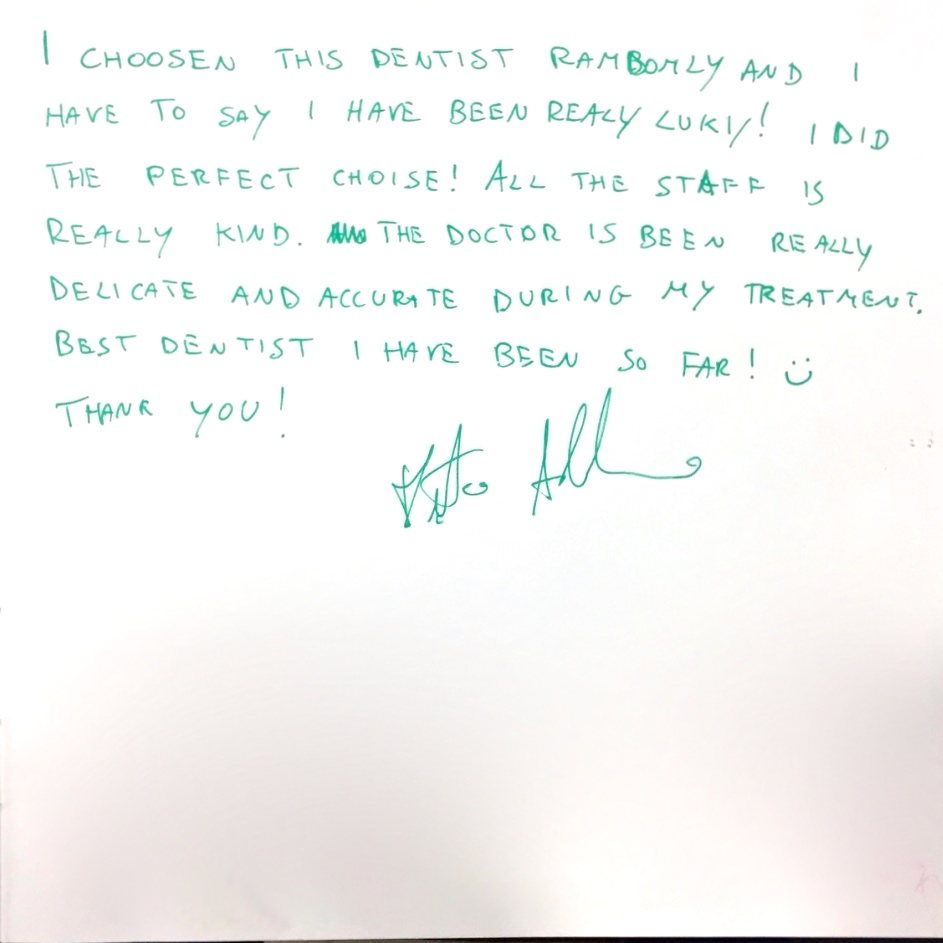 I CHOOSEN THIS DENTIST RAMBOMLY AND I
HAVE TO SAY I HAVE BEEN REALY LUKIY! I DID
THE PERFECT CHOISE! ALL THE STAFF IS
REALLY KIND. THE DOCTOR IS BEEN REALLY
DELICATE AND ACCURATE DURING MY TREATMENT.
BEST DENTIST I HAVE BEEN SO FAR! :)
THANK YOU!